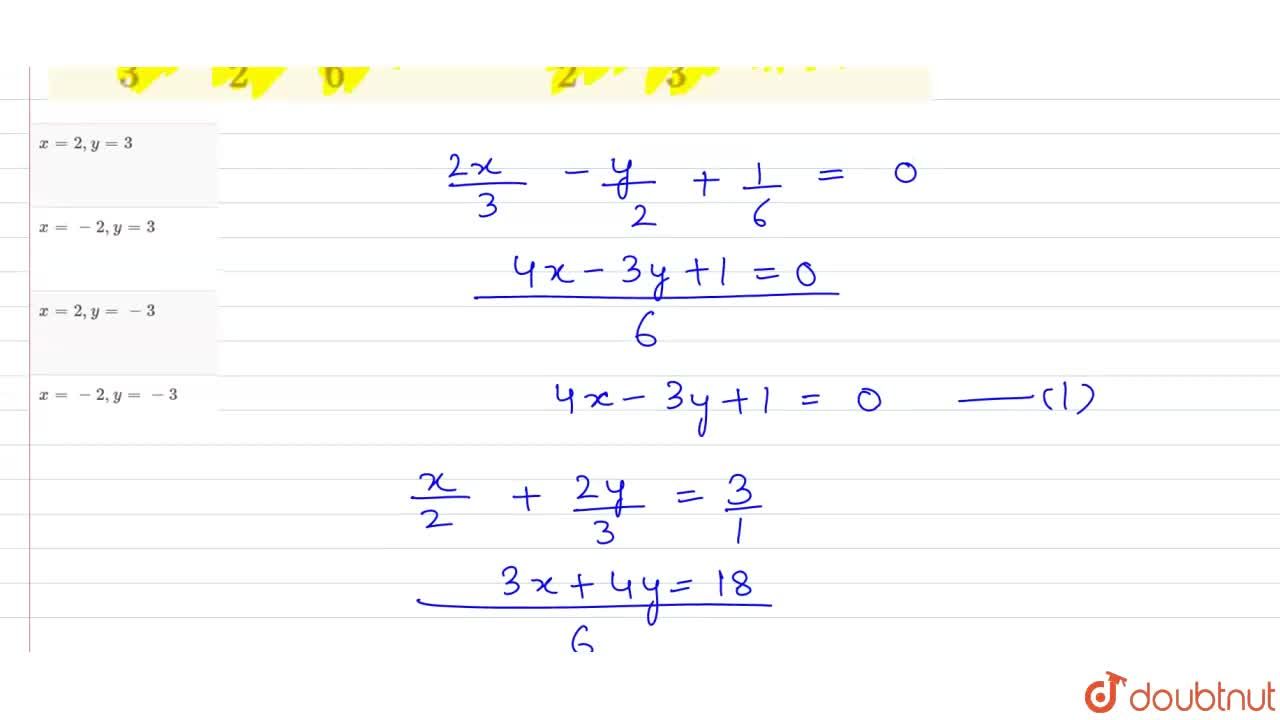 3 2 6 2 3
x = 2, y = 3
x = - 2, y = 3
x = 2, y = - 3
x = - 2, y = - 3
2x/3 - y/2 + 1/6 = 0
4x - 3y + 1 = 0
6
4x - 3y + 1 = 0 —(1)
x/2 + 2y/3 = 3/1
3x + 4y = 18
6
doubtnut